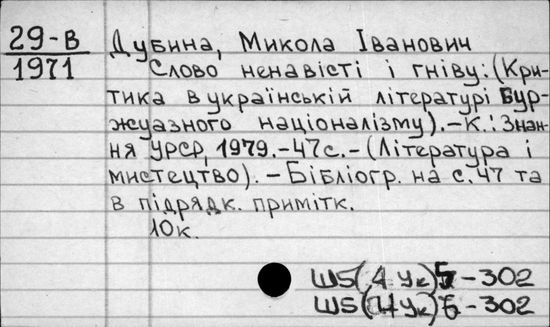 29-В
1971
Дубина, Микола Іванович
Слово ненавісті і гніву: (Кри-
тика в українській літературі бур-
жуазного націоналізму).-К.: Знан-
ня УРСР, 1979.-47с.-(Література і
мистецтво).-Бібліогр. на с.47 та
в підрядк. примітк.
10к.
Ш5(4Ук)5-302
Ш5(4Ук)6-302